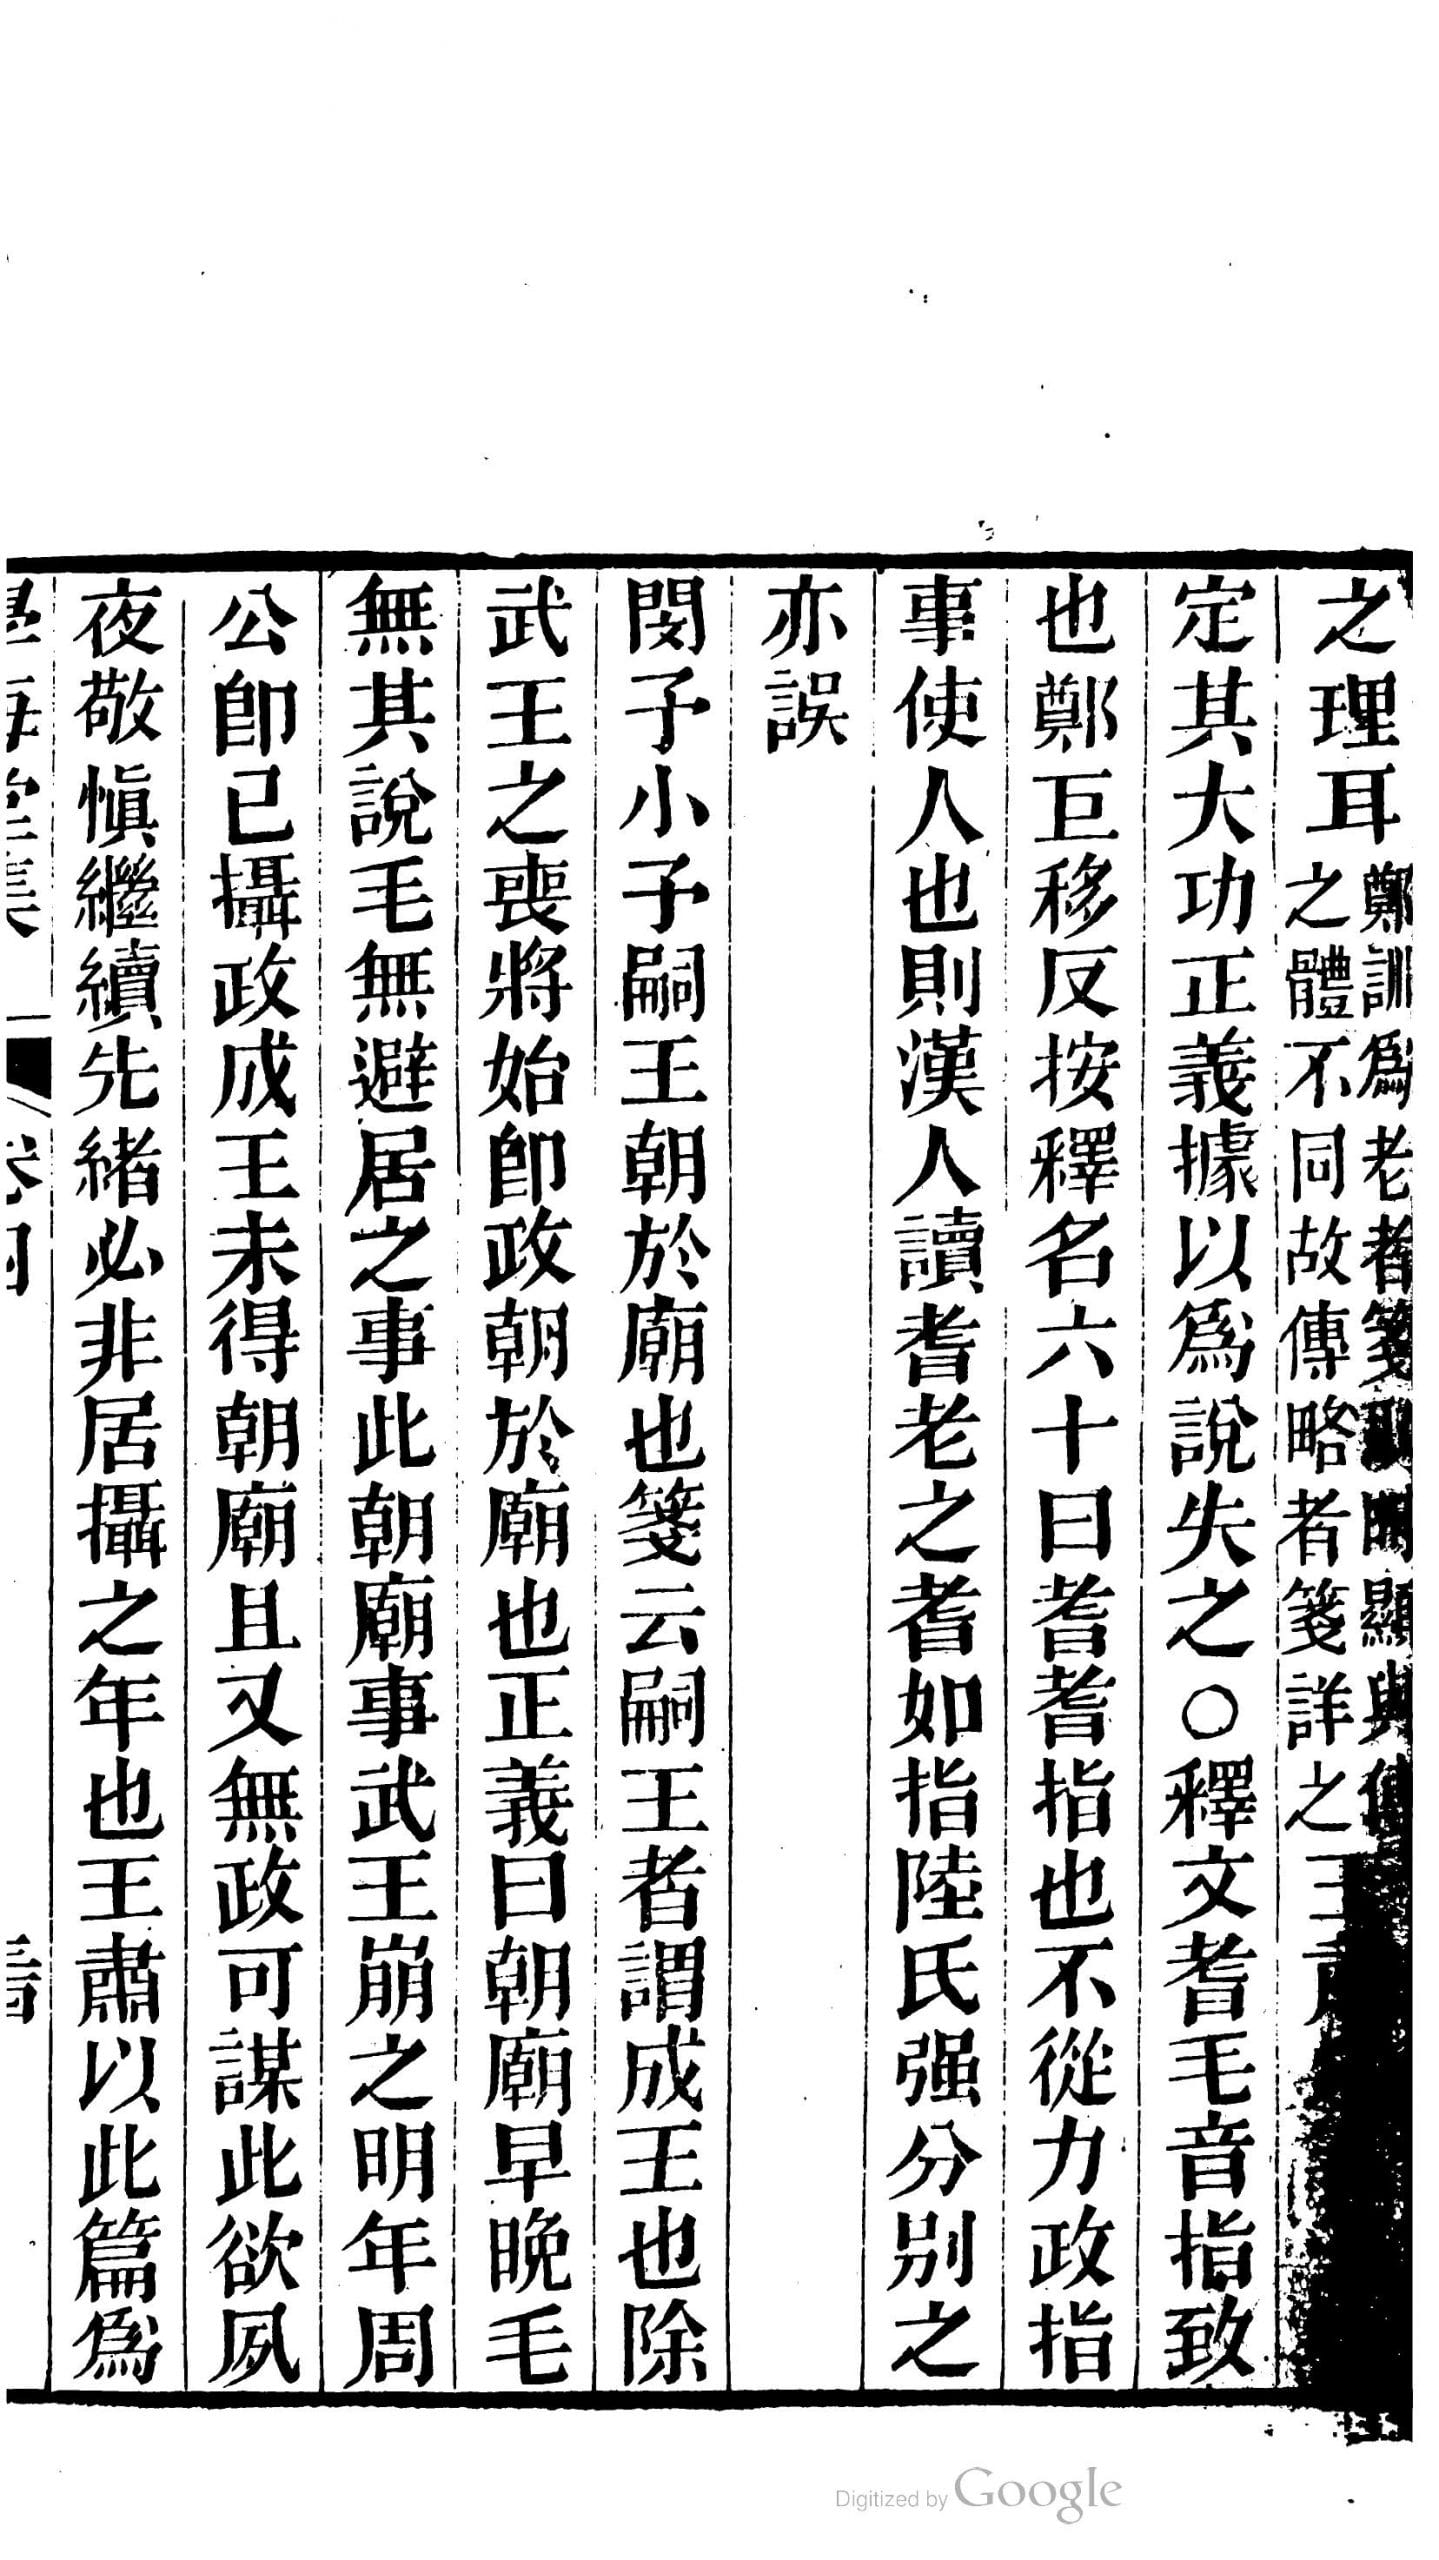 之理耳鄭訓爲老者箋顯與傳
之體不同故傳略者箋詳之王
定其大功正義據以爲說失之○釋文耆毛音指致
也鄭巨移反按釋名六十曰耆耆指也不從力政指
事使人也則漢人讀耆老之耆如指陸氏强分別之
亦誤
閔予小子嗣王朝於廟也箋云嗣王者謂成王也除
武王之喪將始卽政朝於廟也正義曰朝廟早晚毛
無其說毛無避居之事此朝廟事武王崩之明年周
公卽已攝政成王未得朝廟且又無政可謀此欲夙
夜敬愼繼續先緒必非居攝之年也王肅以此篇爲